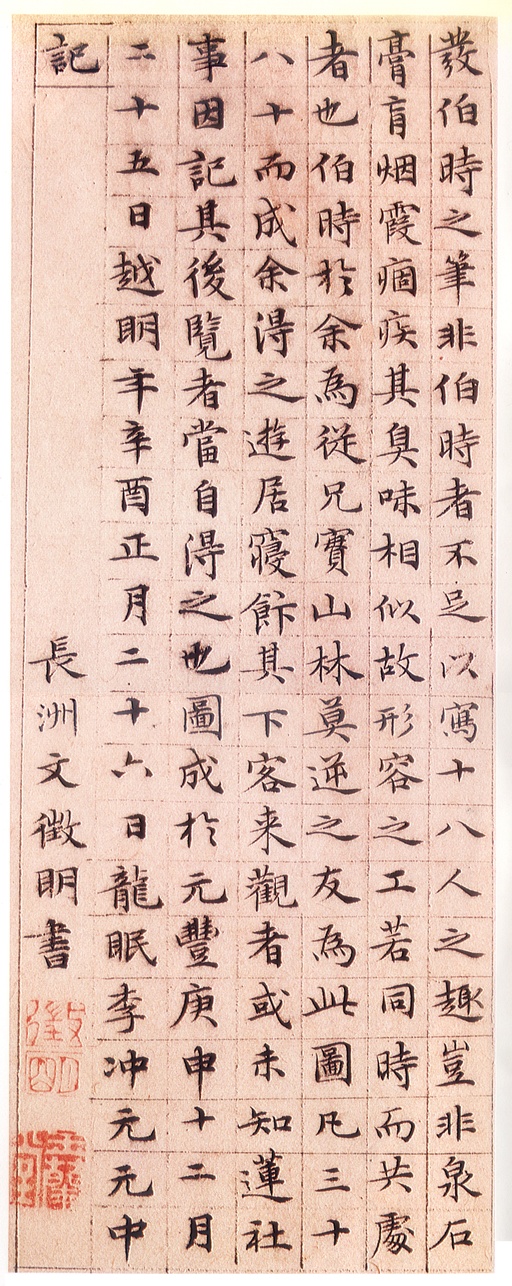 發伯時之筆非伯時者不足以寫十八人之趣豈非泉石
膏肓烟霞痼疾其臭味相似故形容之工若同時而共處
者也伯時於余為從兄實山林莫逆之友為此圖凡三十
八十而成余得之遊居寢餙其下客来觀者或未知蓮社
事因記其後覽者當自得之也圖成於元豐庚申十二月
二十五日越明年辛酉正月二十六日龍眠李冲元元中
記
長洲文徵明書
徵明